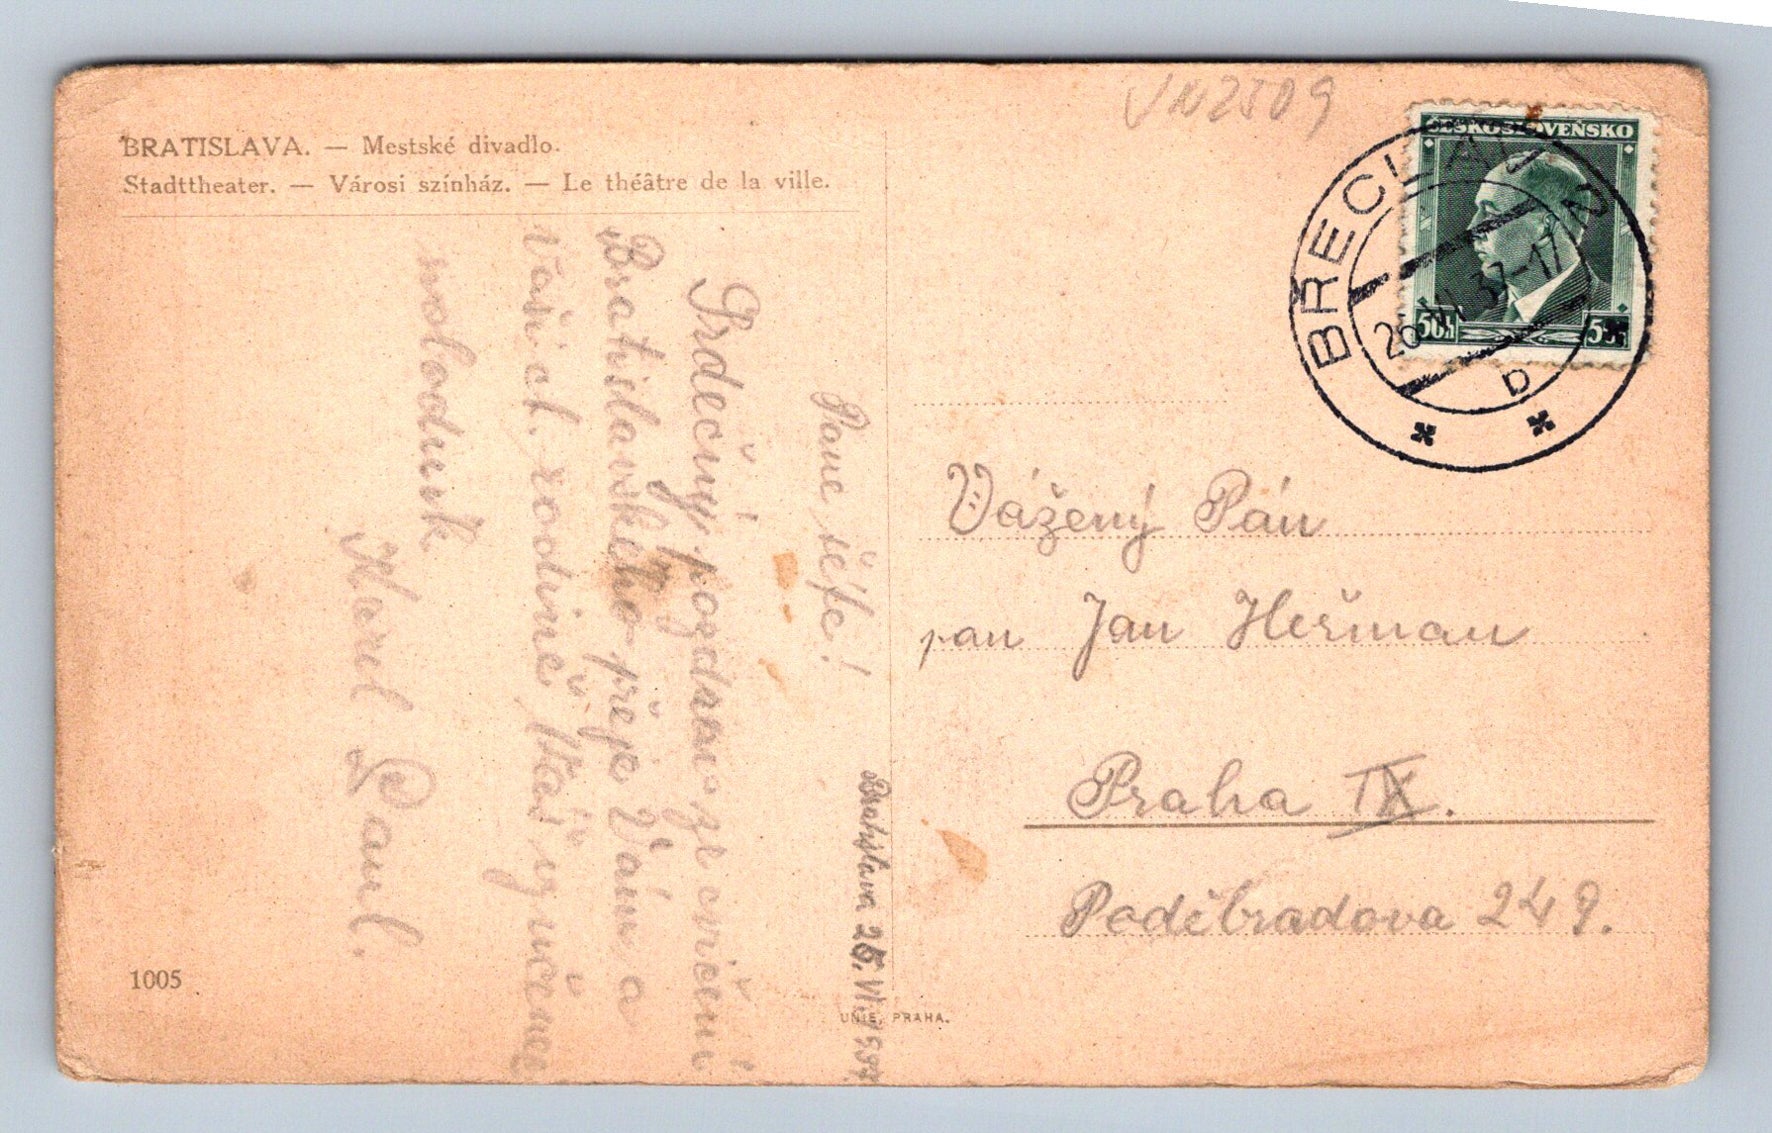 BRATISLAVA. — Mestské divadlo.
Stadttheater. — Városi színház. — Le théâtre de la ville.
VN2509
ČESKOSLOVENSKO
50h
BŘECLAV 2
26. VI. 37-17
b
Bratislava 25. VI. 1937
Pane šéfe!
Srdečný pozdrav ze cvičení
Bratislavského přeje Vám a
Vaší ct. rodině Váš vyučenec
Karel Paul.
Vážený Pán
pan Jan Heřman
Praha IX.
Poděbradova 249.
1005
UNIE, PRAHA.